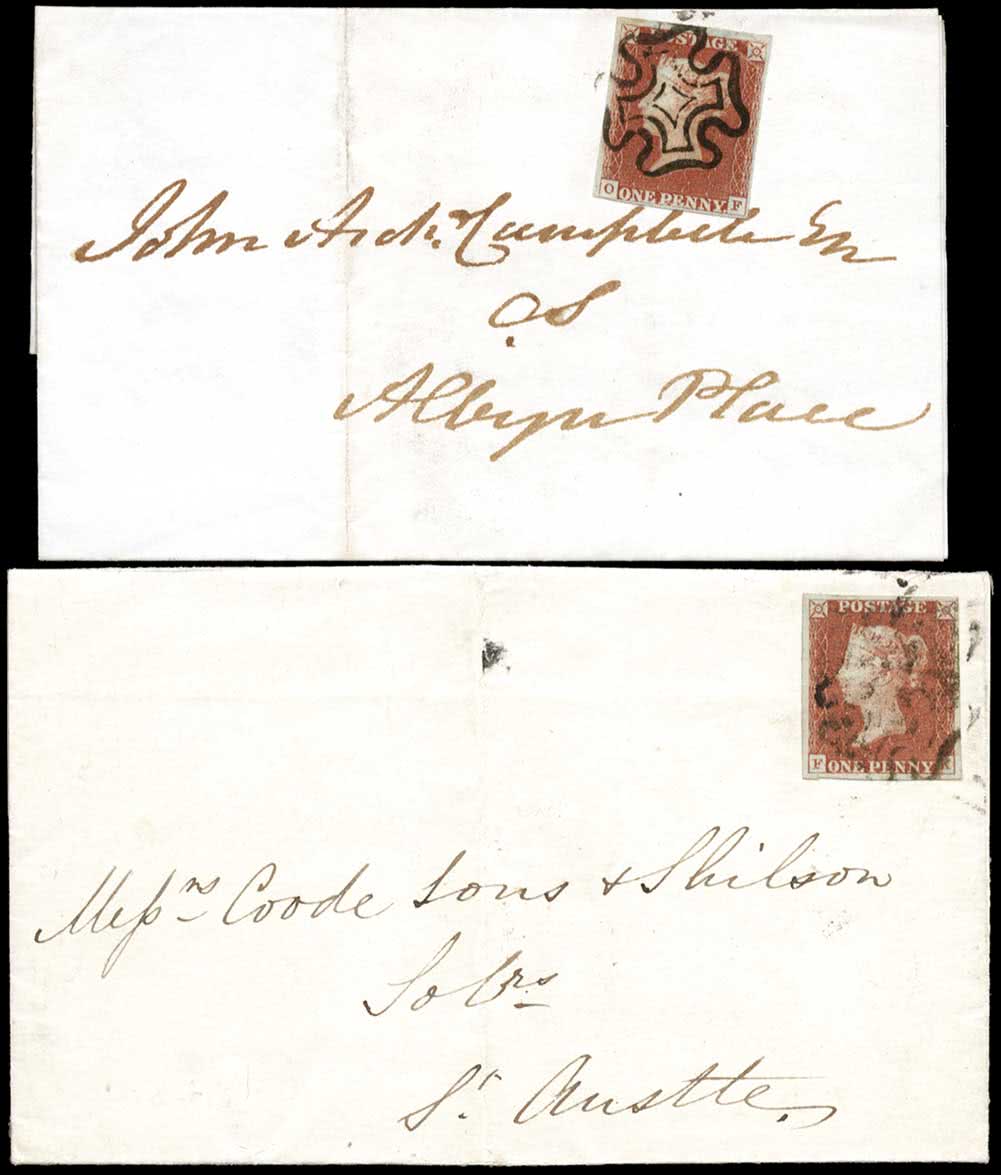 POSTAGE
O ONE PENNY F
John Archd. Campbell Esqr
CS
Albyn Place
POSTAGE
F ONE PENNY K
Messrs Coode Sons & Shilson
Solrs
St. Austle